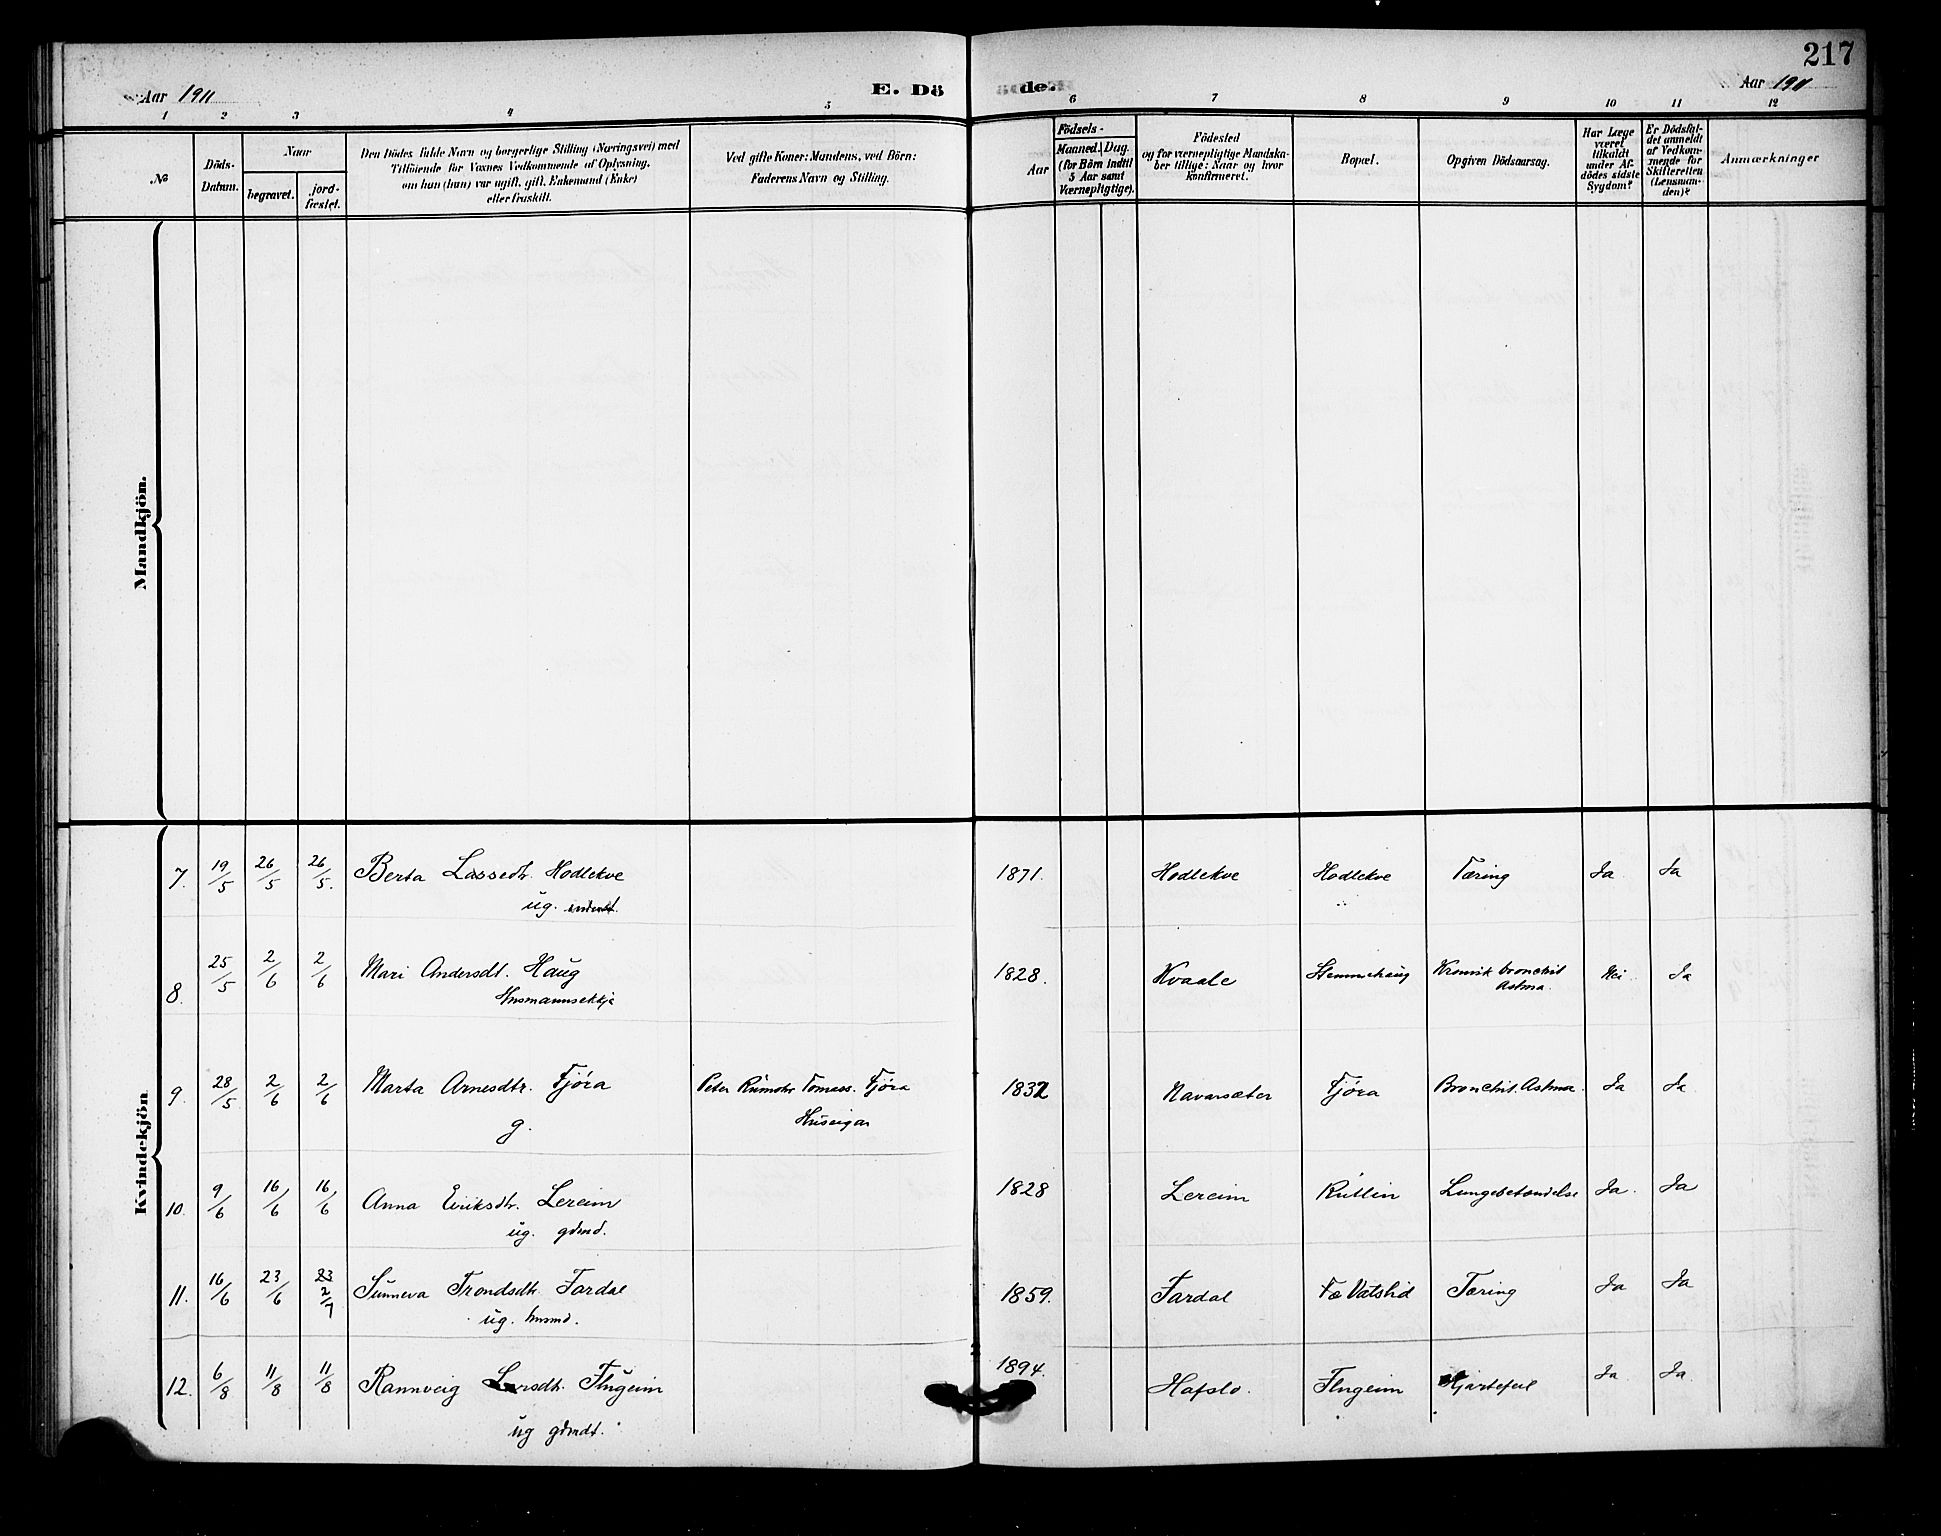 217
Aar 1911
E. Döde.
Aar 1911
1 2 3 4 5 6 7 8 9 10 11 12
№
Döds-
Datum.
Naar
begravet.
jord-
fæstet.
Den Dödes fulde Navn og borgerlige Stilling (Næringsvei) med
Tilföiende for Voxnes Vedkommende af Oplysning,
om han (hun) var ugift, gift, Enkemand (Enke)
eller fraskilt.
Ved gifte Koner: Mandens, ved Börn:
Faderens Navn og Stilling.
Aar
Födsels-
Maaned. Dag.
(for Börn indtil
5 Aar samt
Værnepligtige).
Födested
og for værnepligtige Mandska-
ber tillige: Naar og hvor
konfirmeret.
Bopæl.
Opgiven Dödsaarsag.
Har Læge
været
tilkaldt
under Af-
dödes sidste
Sygdom?
Er Dödsfal-
det anmeldt
af Vedkom-
mende for
Skifteretten
(Lensman-
den)?
Anmærkninger
Mandkjön.
Kvindekjön
7. 19/5 26/5 26/5. Berta Lassedtr. Hodlekve 1871. Hodlekve Hodlekve Tæring Ja Ja
ug.
8. 25/5 2/6 2/6 Mari Andersdt. Haug 1828. Kvaale Stemmehaug Kronisk bronchit Nei Ja
Husmannsekkja Astma.
9. 28/5 2/6 2/6 Marta Arnesdtr. Fjóra Peter Rumohr Tomass. Fjóra 1832 Navarsæter Fjóra Bronchit. Astma. Ja Ja
g. Huseigar
10. 9/6 16/6 16/6 Anna Eiriksdtr. Lereim 1828 Lereim Rutlin Lungebetændelse Ja. Ja
ug. gdmd.
11. 16/6 23/6 23 2/7 Sunneva Trondsdtr. Fardal 1859. Fardal Fæ Vatslid Tæring Ja Ja
ug. husmd.
12. 6/8 11/8 11/8 Rannveig Larsdtr. Flugeim 1894. Hafslo. Flugeim Hjartefeil Ja Ja.
ug gdmdt.